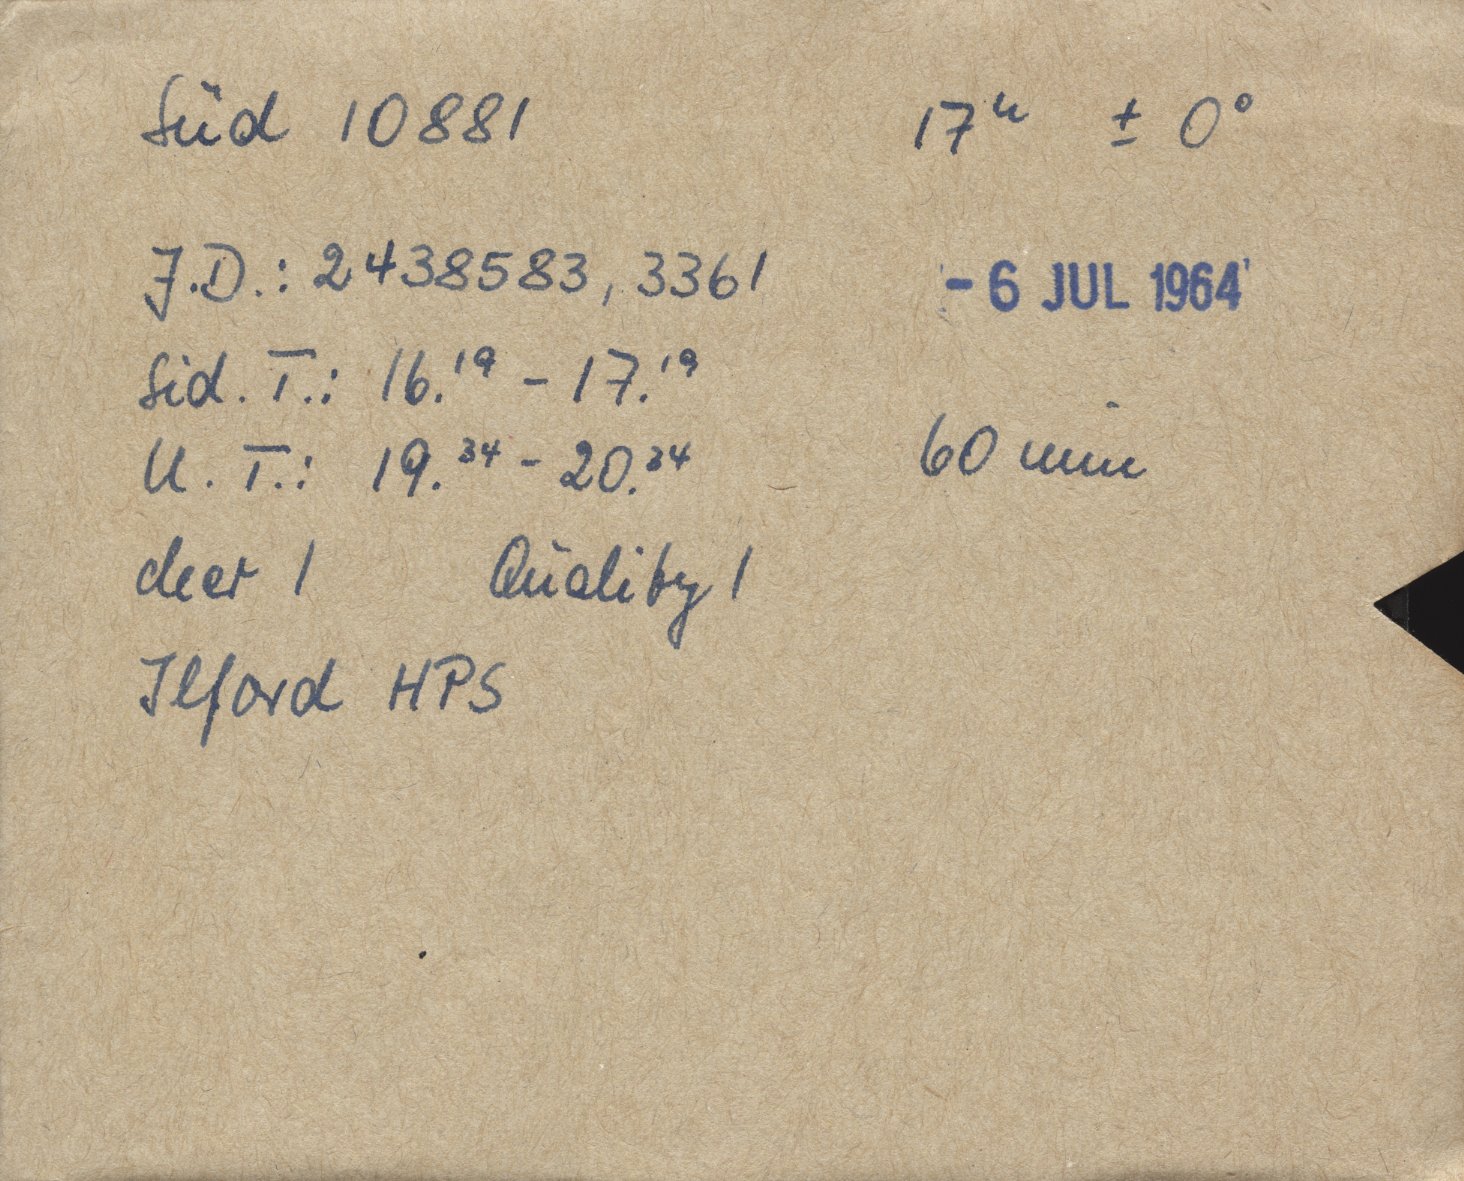 Süd 10881 17ʰ ± 0°
J.D.: 2438583,3361 - 6 JUL 1964
Sid. T.: 16.¹⁹ - 17.¹⁹
U. T.: 19.³⁴ - 20.³⁴ 60 min
cleer 1 Quality 1
Ilford HPS